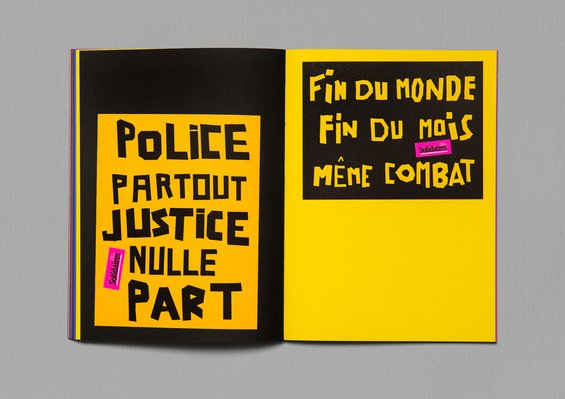 POLICE
PARTOUT
JUSTICE
NULLE
Solidaires
PART
FIN DU MONDE
FIN DU MOIS
Solidaires
MÊME COMBAT